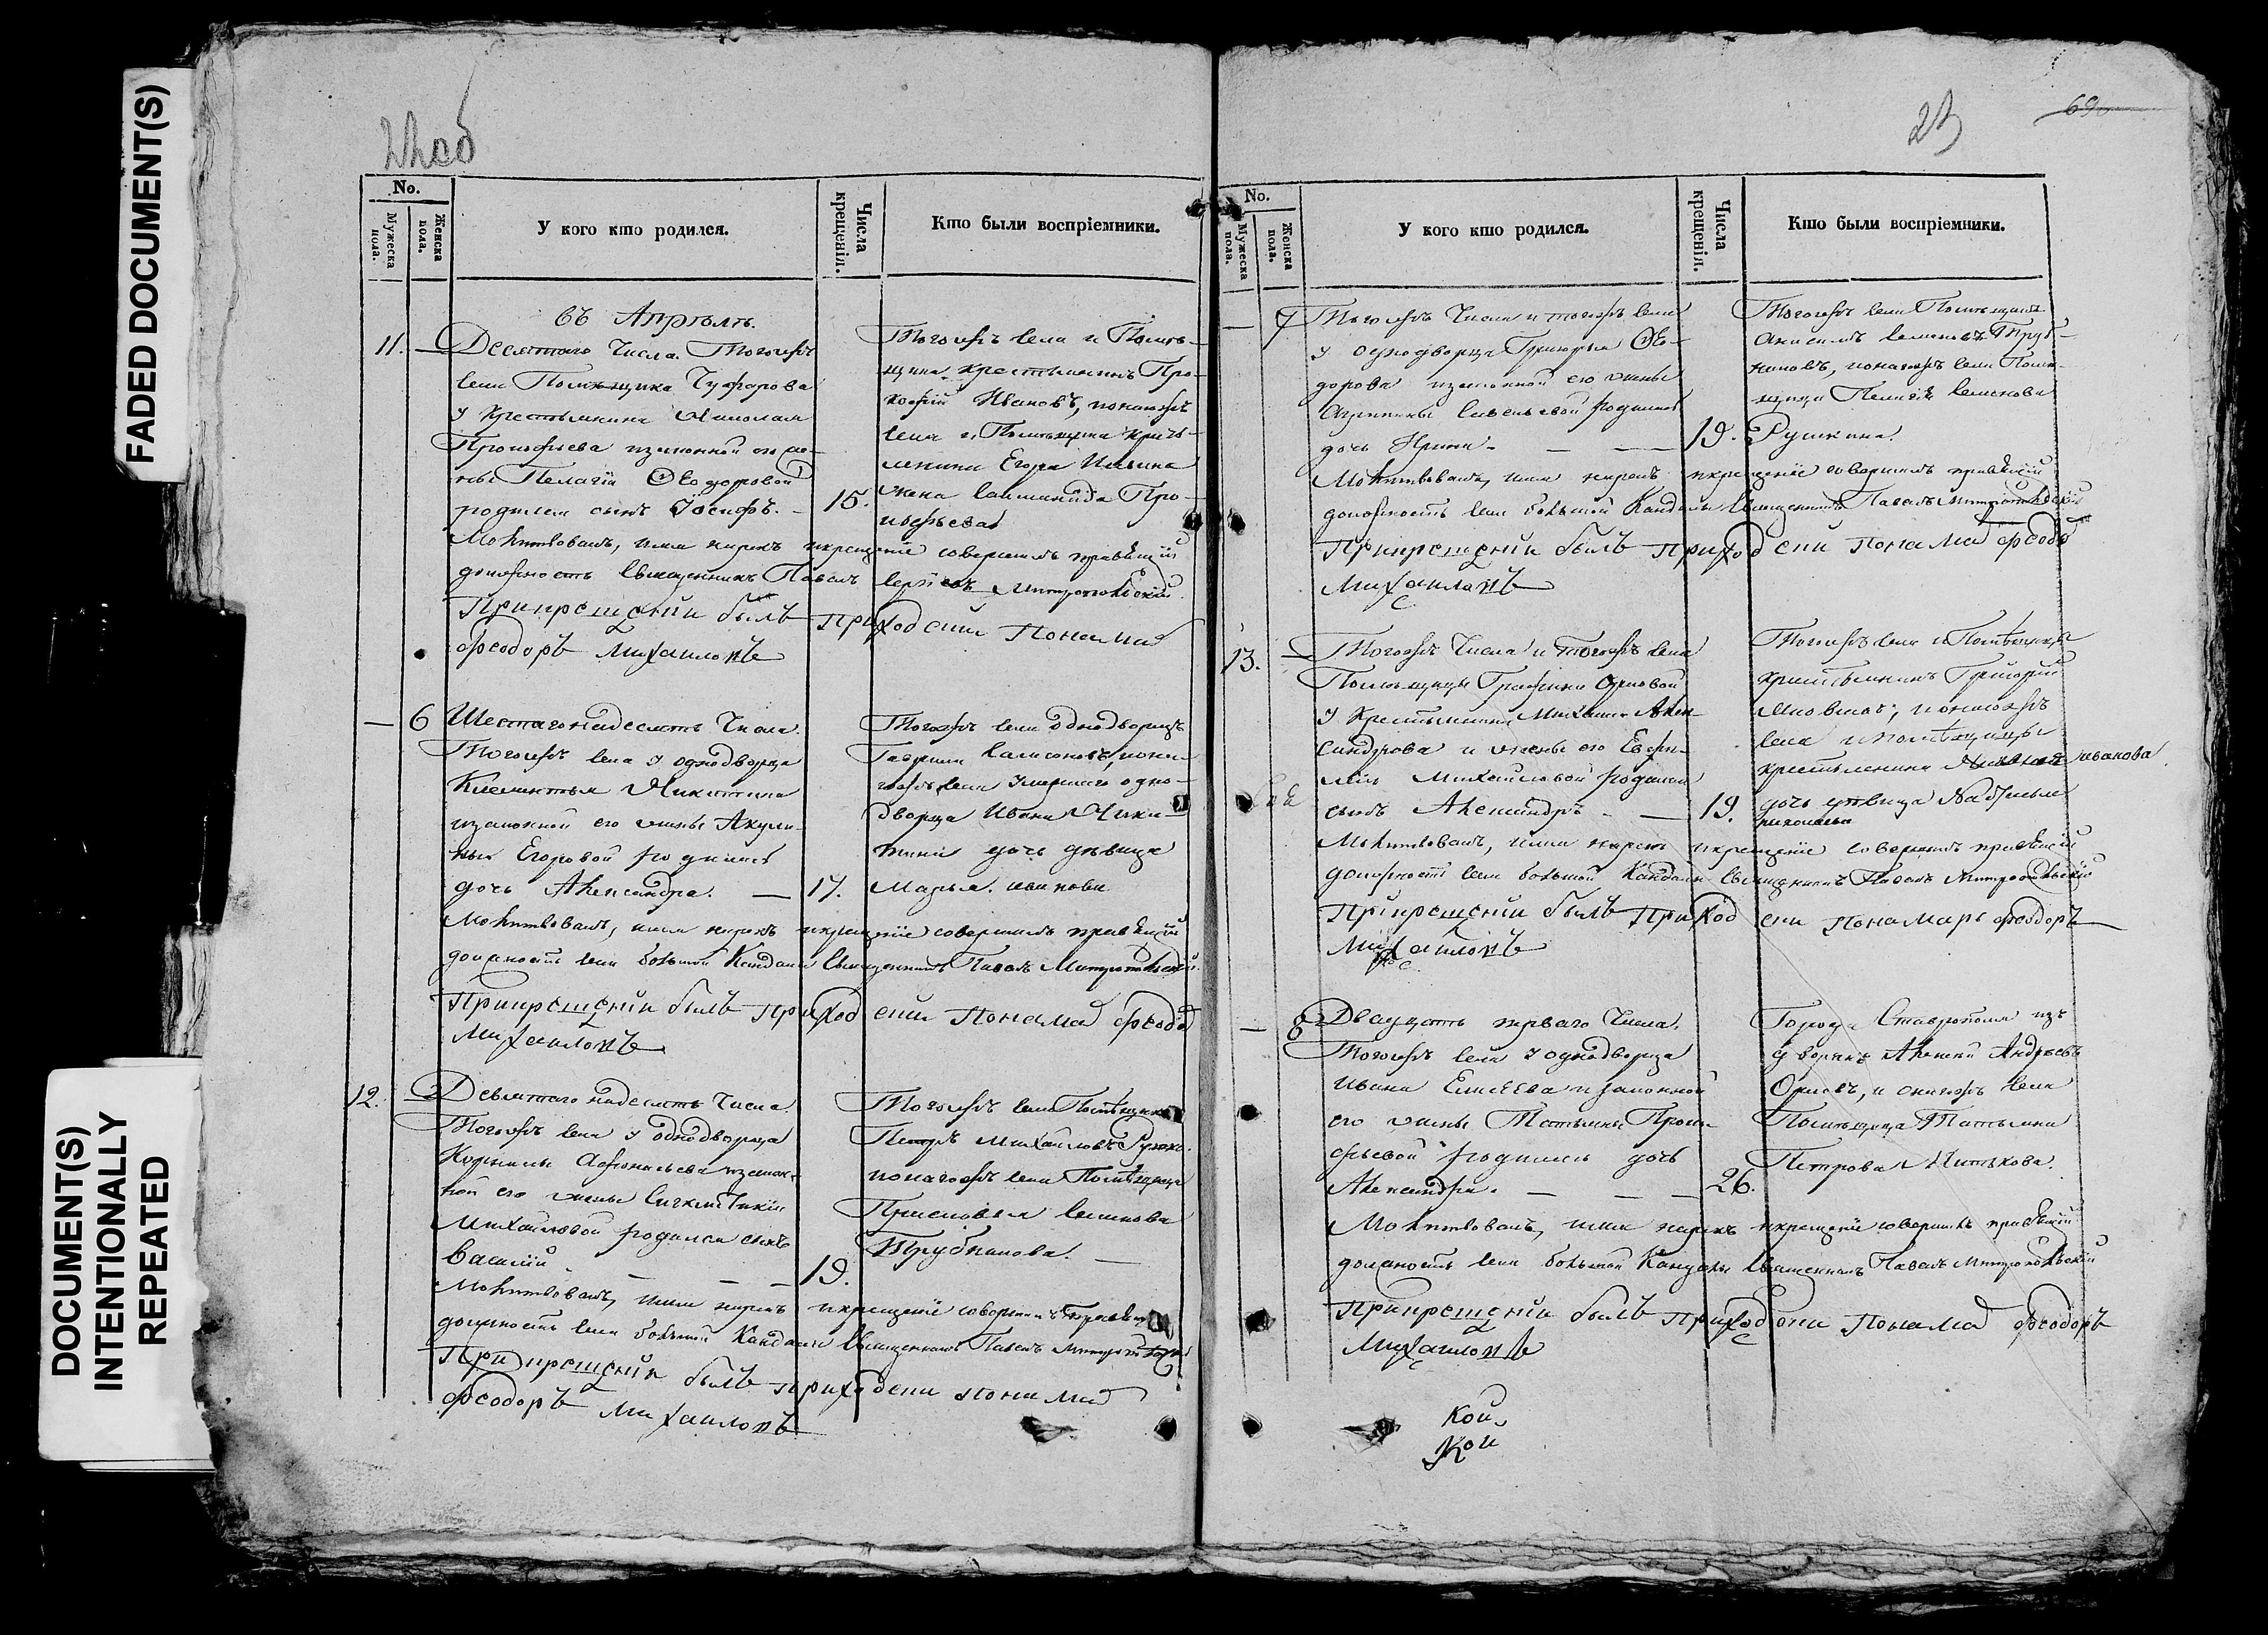 FADED DOCUMENT(S)
DOCUMENT(S)
INTENTIONALLY
REPEATED
No.
Мужеска пола.
Женска пола.
У кого кто родился.
Числа крещенія.
Кто были воспріемники.
въ Апрѣлѣ.
11. — Десятаго Числа. Тогожъ
села Помѣщика Чуфарова
у Крестьянина Николая
Прокофьева изаконной его же-
ны Пелагіи Ѳеодоровой
родился сынъ Іосифъ. — 15.
Тогожъ села и Помѣ-
щика крестьянинъ Про-
кофій Ивановъ, ионагожъ
села и Помѣщика кресть-
янина Егора Ильина
жена
Молитвовалъ, имя нарекъ икрещеніе совершилъ правящій
должность Священникъ Павелъ Митропольскій
Прикрещеніи былъ приходскій Пономарь
Феодоръ Михаиловъ
— 6 Шестагонадесять Числа.
Тогожъ села у однодворца
Климентья Никитина
изаконной его жены Акули-
ны Егоровой родилась
дочь Александра. — 17.
Тогожъ села однодворецъ
Гаврила
гожъ села умершаго одно-
дворца Ивана Ники-
тина дочь дѣвица
Марья Иванова
Молитвовалъ, имя нарекъ икрещеніе совершилъ правящій
должность села большой Кандалы Священникъ Павелъ Митропольскій
Прикрещеніи былъ приходскій Пономарь Феодоръ
Михаиловъ
12. — Девятагонадесять Числа.
Тогожъ села у однодворца
Корнилы Афонасьева изакон-
ной его жены
Михайловой родился сынъ
Василій — — — 19.
Тогожъ села Помѣщикъ
Петръ Михайловъ
ионагожъ села Помѣщица
Прасковья Семенова
Трубникова. —
Молитвовалъ, имя нарекъ икрещеніе совершилъ правящій
должность села большой Кандалы Священникъ Павелъ Митропольскій
Прикрещеніи былъ приходскій Пономарь
Феодоръ Михаиловъ
23
69
No.
Мужеска пола.
Женска пола.
У кого кто родился.
Числа крещенія.
Кто были воспріемники.
— 7 Тогожъ Числа и тогожъ села
у однодворца Григорья Ѳео-
дорова изаконной его жены
Агрипины Савельевой родилась
дочь Ирина. — — 19.
Тогожъ села Помѣщикъ
Анисимъ Семеновъ Труб-
никовъ, ионагожъ села Помѣ-
щица Пелагія Семенова
Рушкина.
Молитвовалъ, имя нарекъ, икрещеніе совершилъ правящій
должность села большой Кандалы Священникъ Павелъ Митропольскій
Прикрещеніи былъ приходскій Пономарь Феодоръ
Михаиловъ
13. — Тогожъ Числа и Тогожъ села
Помѣщицы Графини Орловой
у Крестьянина Михаила Алек-
сандрова и жены его Евфи-
міи Михайловой родился
сынъ Александръ — — 19.
Тогожъ села и Помѣщицы
крестьянинъ Григорій
ионагожъ
села и помѣщицы
крестьянина Иванова
дочь дѣвица
Николаева
Молитвовалъ, имя нарекъ икрещеніе совершилъ правящій
должность села большой Кандалы Священникъ Павелъ Митропольскій
Прикрещеніи былъ приходскій Пономарь Феодоръ
Михаиловъ
— 8 Двадцать перваго Числа.
Тогожъ села у однодворца
Ивана Елисѣева изаконной
его жены Татьяны Проко-
фьевой родилась дочь
Александра. — — — 26.
Города Ставрополя изъ
дворянъ Алексѣй Андреевъ
Орловъ, и онагожъ села
Помѣщица Татьяна
Петрова Житкова.
Молитвовалъ, имя нарекъ икрещеніе совершилъ правящій
должность села большой Кандалы Священникъ Павелъ Митропольскій
Прикрещеніи былъ приходскій Пономарь Феодоръ
Михаиловъ
кой
Кой